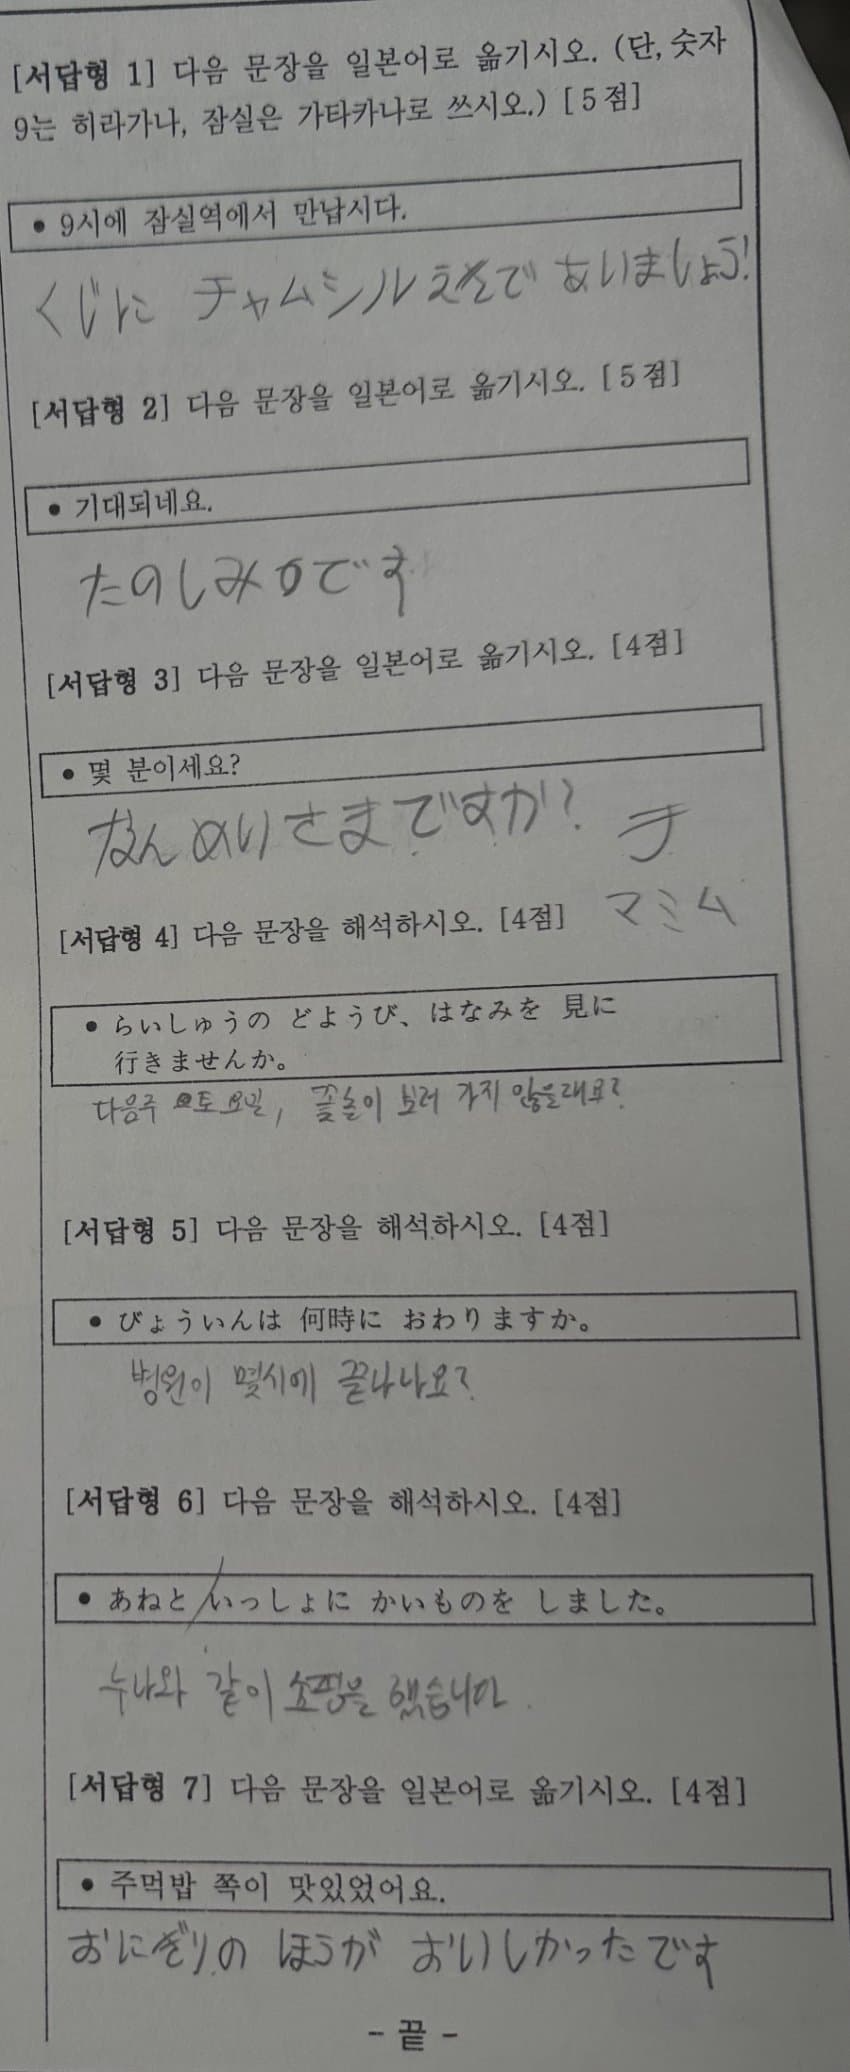 [서답형 1] 다음 문장을 일본어로 옮기시오. (단, 숫자
9는 히라가나, 잠실은 가타카나로 쓰시오.) [5점]
• 9시에 잠실역에서 만납시다.
くじに チャムシル えきで あいましょう!
[서답형 2] 다음 문장을 일본어로 옮기시오. [5점]
• 기대되네요.
たのしみです
[서답형 3] 다음 문장을 일본어로 옮기시오. [4점]
• 몇 분이세요?
なんめいさまですか? チ
マミム
[서답형 4] 다음 문장을 해석하시오. [4점]
• らいしゅうの どようび、はなみを 見に
行きませんか。
다음주 토요일, 꽃놀이 보러 가지 않을래요?
[서답형 5] 다음 문장을 해석하시오. [4점]
• びょういんは 何時に おわりますか。
병원이 몇시에 끝나나요?
[서답형 6] 다음 문장을 해석하시오. [4점]
• あねと いっしょに かいものを しました。
누나와 같이 쇼핑을 했습니다.
[서답형 7] 다음 문장을 일본어로 옮기시오. [4점]
• 주먹밥 쪽이 맛있었어요.
おにぎりの ほうが おいしかったです
- 끝 -